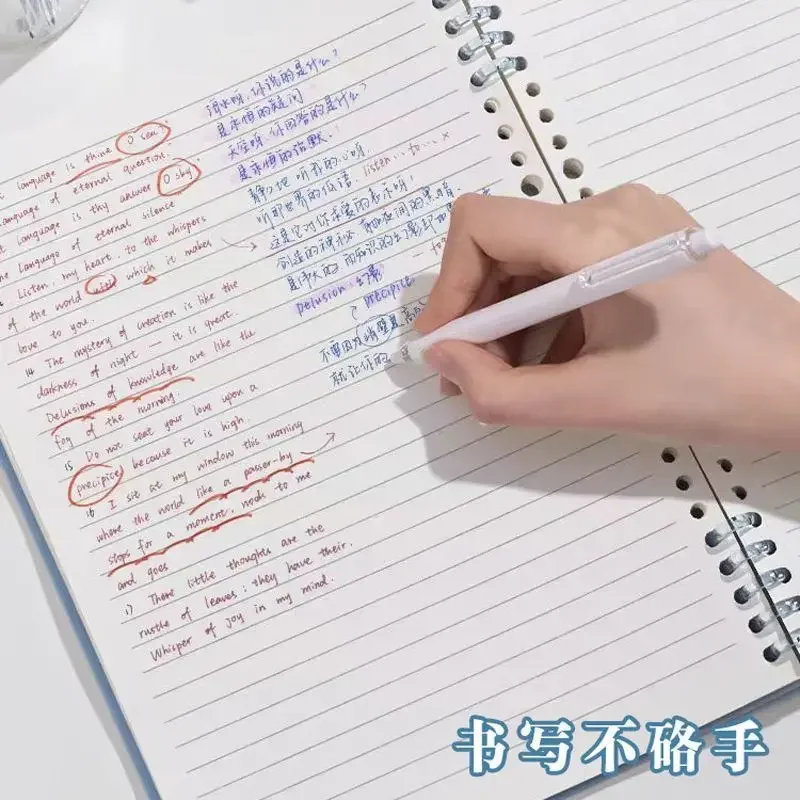 language is thine O sea
language of eternal question.
language is thy answer O sky
language of eternal silence
Listen, my heart, to the whispers
of the world with which it makes
love to you.
14 The mystery of creation is like the
darkness of night — it is great.
Delusions of knowledge are like the
fog of the morning.
15 Do not seat your love upon a
precipice because it is high.
16 I sit at my window this morning
where the world like a passer-by
stops for a moment, nods to me
and goes
17 There little thoughts are the
rustle of leaves; they have their.
Whisper of joy in my mind.
海水呀,你说的是什么?
是永恒的疑问
天空呀,你回答的是什么
是永恒的沉默.
静静地 听,我的心呀,
听那世界的低语. listen... to... ×
这是它对你求爱的表示呀.
创造的神秘,有如夜间的黑暗.
是伟大的.而知识的幻影却如
Delusion: 幻影
precipice
不要因为峭壁是高
就让你的
书写不硌手